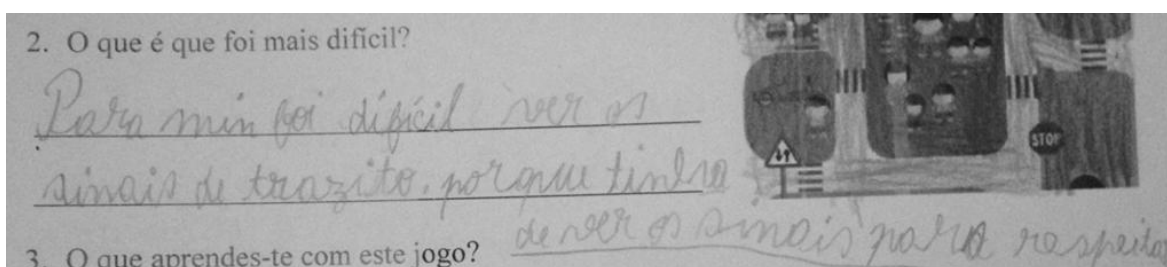 2. O que é que foi mais difícil?
Para min foi difícil ver os
sinais de trazito. porque tinha
de ver os sinais para respeita
STOP
3. O que aprendes-te com este jogo?